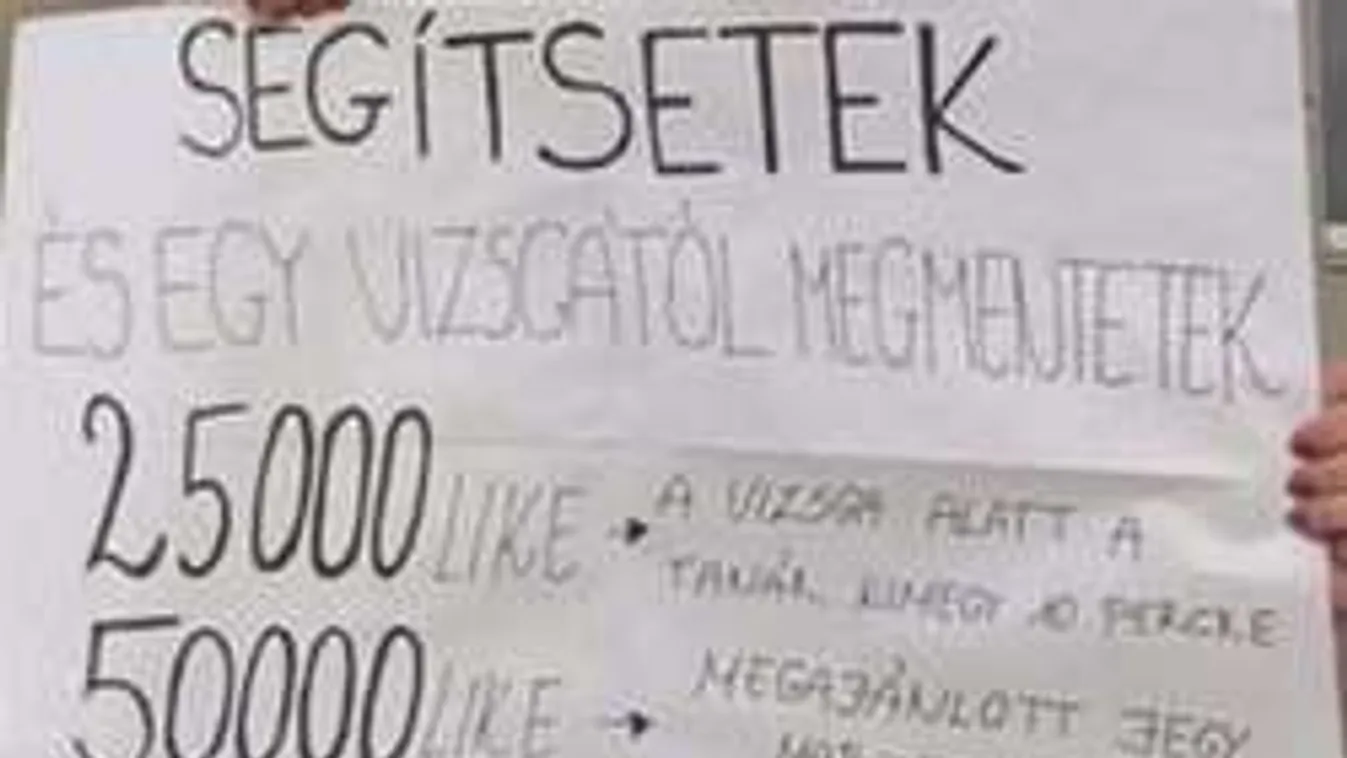 SEGÍTSETEK
ÉS EGY VIZSGÁTÓL MEGMENTETEK
25000 LIKE → A VIZSGA ALATT A
TANÁR KIMEGY 10 PERCRE
50000 LIKE → MEGAJÁNLOTT JEGY